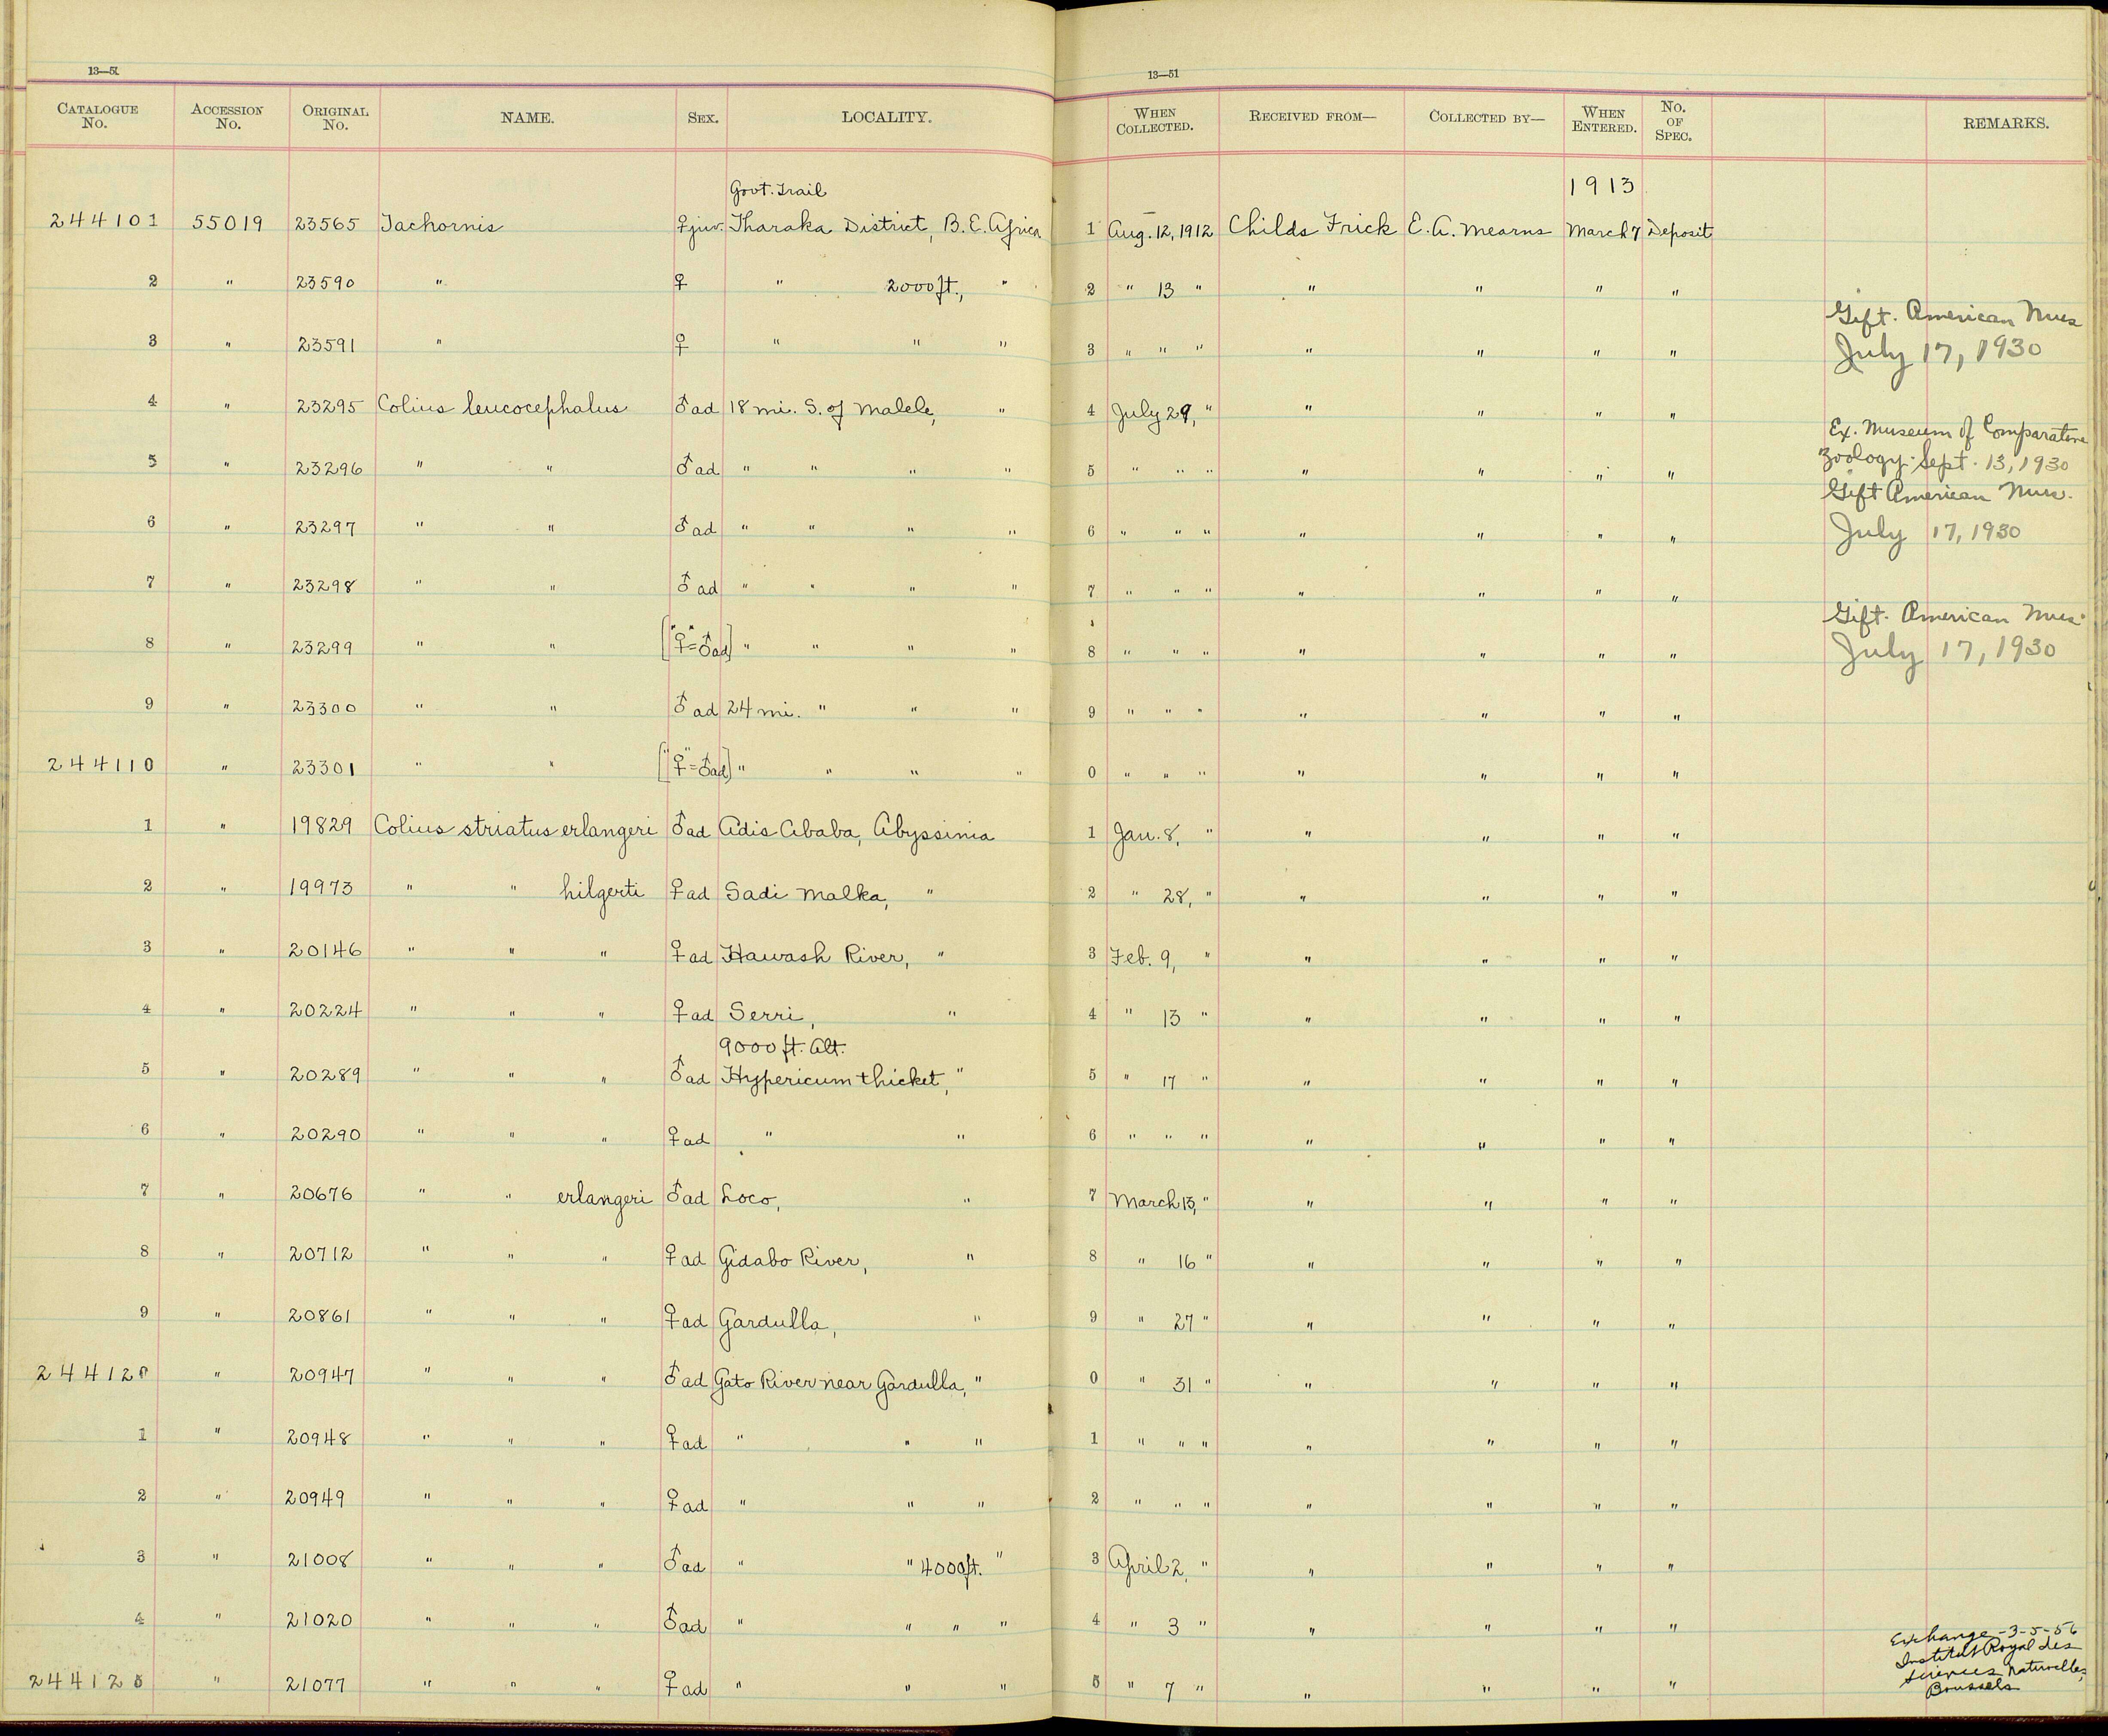 13—51 13—51
CATALOGUE No. ACCESSION No. ORIGINAL No. NAME. SEX. LOCALITY. WHEN COLLECTED. RECEIVED FROM— COLLECTED BY— WHEN ENTERED. No. OF SPEC. REMARKS.
Govt. Trail 1913
244101 55019 23565 Tachornis ♀juv. Tharaka District, B.E. Africa 1 Aug. 12, 1912 Childs Frick E. A. Mearns March 7 Deposit
2 " 23590 " ♀ " 2000 ft., " 2 " 13 " " " " "
Gift. American Mus
3 " 23591 " ♀ " " " 3 " " " " " " " July 17, 1930
4 " 23295 Colius leucocephalus ♂ad 18 mi. S. of Malele, " 4 July 29, " " " " "
Ex. Museum of Comparative
5 " 23296 " " ♂ad " " " " 5 " " " " " " " Zoology. Sept. 13, 1930
Gift American Mus.
6 " 23297 " " ♂ad " " " " 6 " " " " " " " July 17, 1930
7 " 23298 " " ♂ad " " " " 7 " " " " " " "
Gift. American Mus.
8 " 23299 " " ["♀"=♂ad] " " " " 8 " " " " " " " July 17, 1930
9 " 23300 " " ♂ad 24 mi. " " " 9 " " " " " " "
244110 " 23301 " " ["♀"=♂ad] " " " " 0 " " " " " " "
1 " 19829 Colius striatus erlangeri ♂ad Adis Ababa, Abyssinia 1 Jan. 8, " " " " "
2 " 19973 " " hilgerti ♀ad Sadi Malka, " 2 " 28, " " " " "
3 " 20146 " " " ♀ad Hawash River, " 3 Feb. 9, " " " " "
4 " 20224 " " " ♀ad Serri, " 4 " 13 " " " " "
9000 ft. Alt.
5 " 20289 " " " ♂ad Hypericum thicket, " 5 " 17 " " " " "
6 " 20290 " " " ♀ad " " 6 " " " " " " "
7 " 20676 " " erlangeri ♂ad Loco, " 7 March 13, " " " " "
8 " 20712 " " " ♀ad Gidabo River, " 8 " 16 " " " " "
9 " 20861 " " " ♀ad Gardulla, " 9 " 27 " " " " "
244120 " 20947 " " " ♂ad Gato River near Gardulla, " 0 " 31 " " " " "
1 " 20948 " " " ♀ad " " " 1 " " " " " " "
2 " 20949 " " " ♀ad " " " 2 " " " " " " "
3 " 21008 " " " ♂ad " " 4000 ft. " 3 April 2, " " " " "
4 " 21020 " " " ♂ad " " " " 4 " 3 " " " " "
Exchange - 3-5-56
Institut Royal des
Sciences Naturelles,
244125 " 21077 " " " ♀ad " " " 5 " 7 " " " " " Brussels